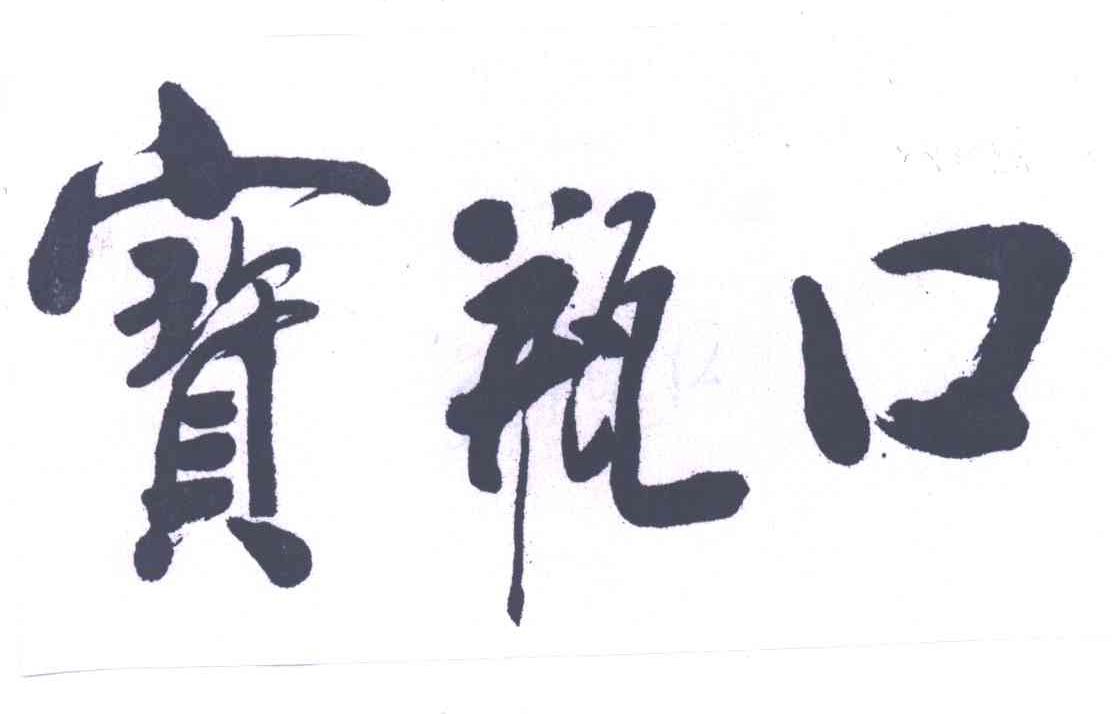 寶瓶口